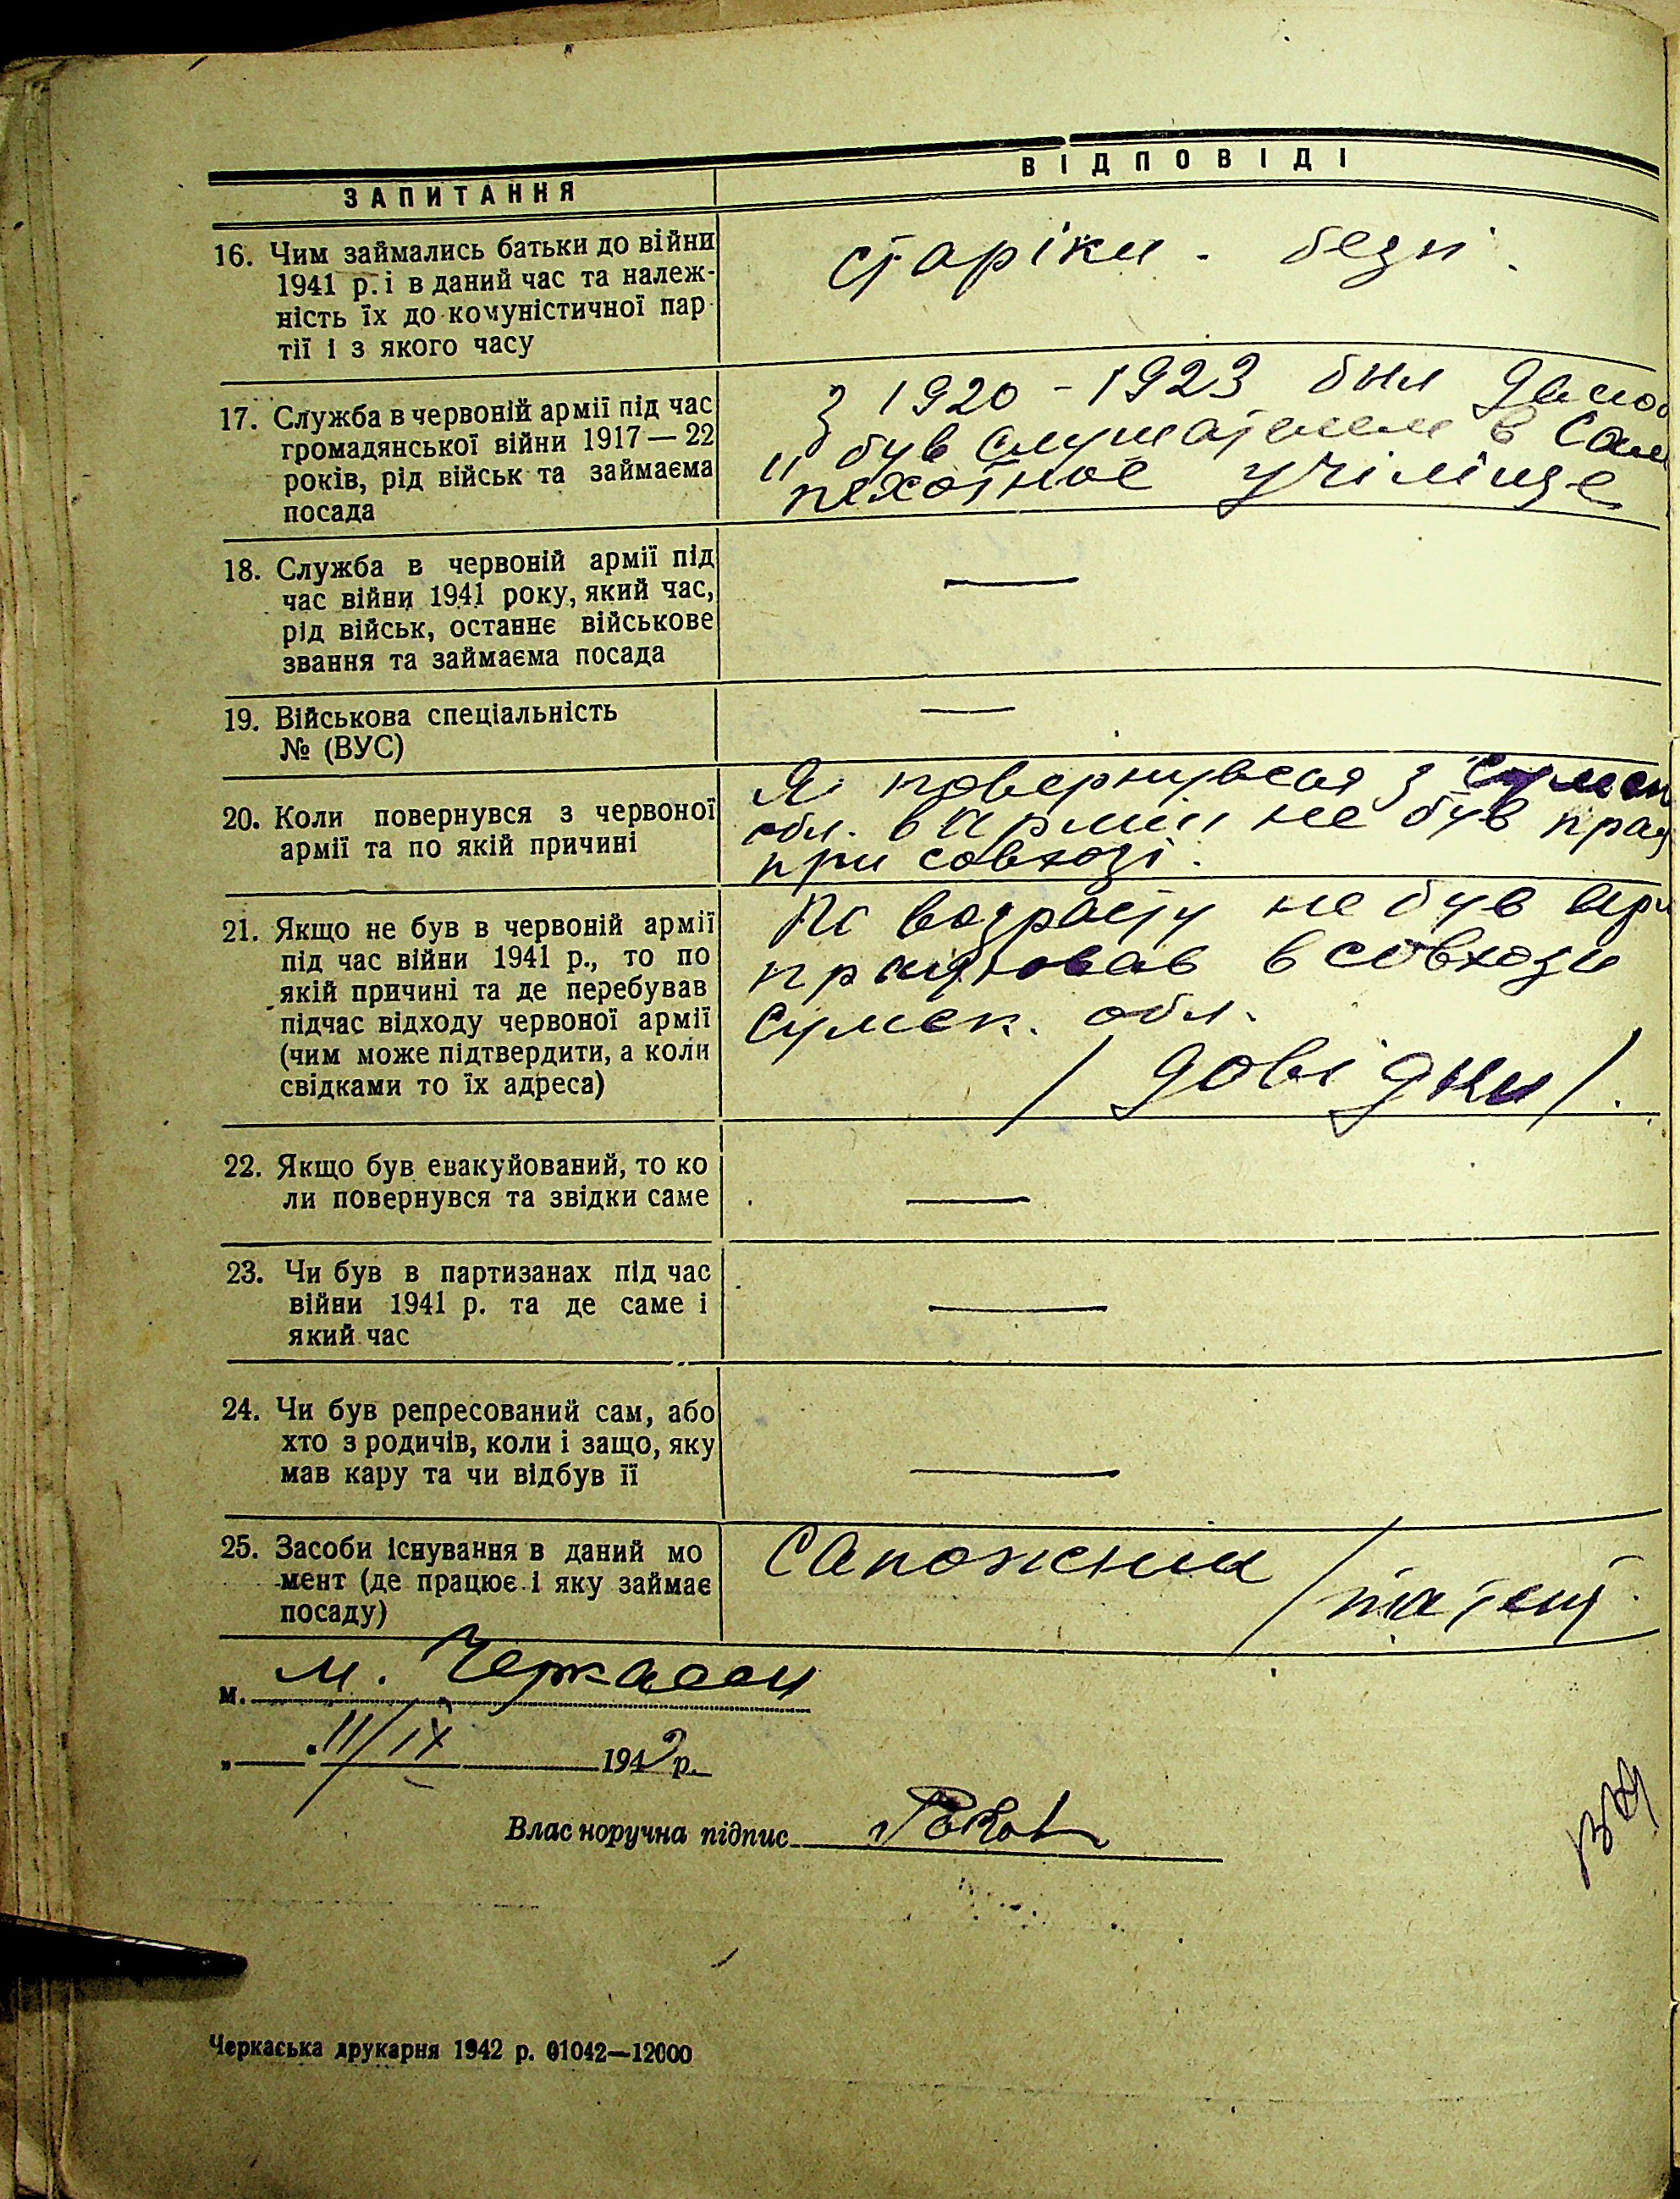 ЗАПИТАННЯ
ВІДПОВІДІ
16. Чим займались батьки до війни
1941 р. і в даний час та належ-
ність їх до комуністичної пар-
тії і з якого часу
старіки. безп.
17. Служба в червоній армії під час
громадянської війни 1917—22
років, рід військ та займаєма
посада
З 1920 - 1923 був
був слушателем в
пехотное учіліще
18. Служба в червоній армії під
час війни 1941 року, який час,
рід військ, останнє військове
звання та займаєма посада
—
19. Військова спеціальність
№ (ВУС)
—
20. Коли повернувся з червоної
армії та по якій причині
Я повернувся з Сумск
обл. в Армии не був прац
при совхозі.
21. Якщо не був в червоній армії
під час війни 1941 р., то по
якій причині та де перебував
підчас відходу червоної армії
(чим може підтвердити, а коли
свідками то їх адреса)
По возрасту не був
працював в совхози
Сумск. обл.
22. Якщо був евакуйований, то ко
ли повернувся та звідки саме
—
23. Чи був в партизанах під час
війни 1941 р. та де саме і
який час
—
24. Чи був репресований сам, або
хто з родичів, коли і защо, яку
мав кару та чи відбув її
—
25. Засоби існування в даний мо
мент (де працює і яку займає
посаду)
Сапожник /патент
м. м. Черкассы
„ 11/IX 1942 р.
Власноручна підпис
Черкаська друкарня 1942 р. 01042—12000